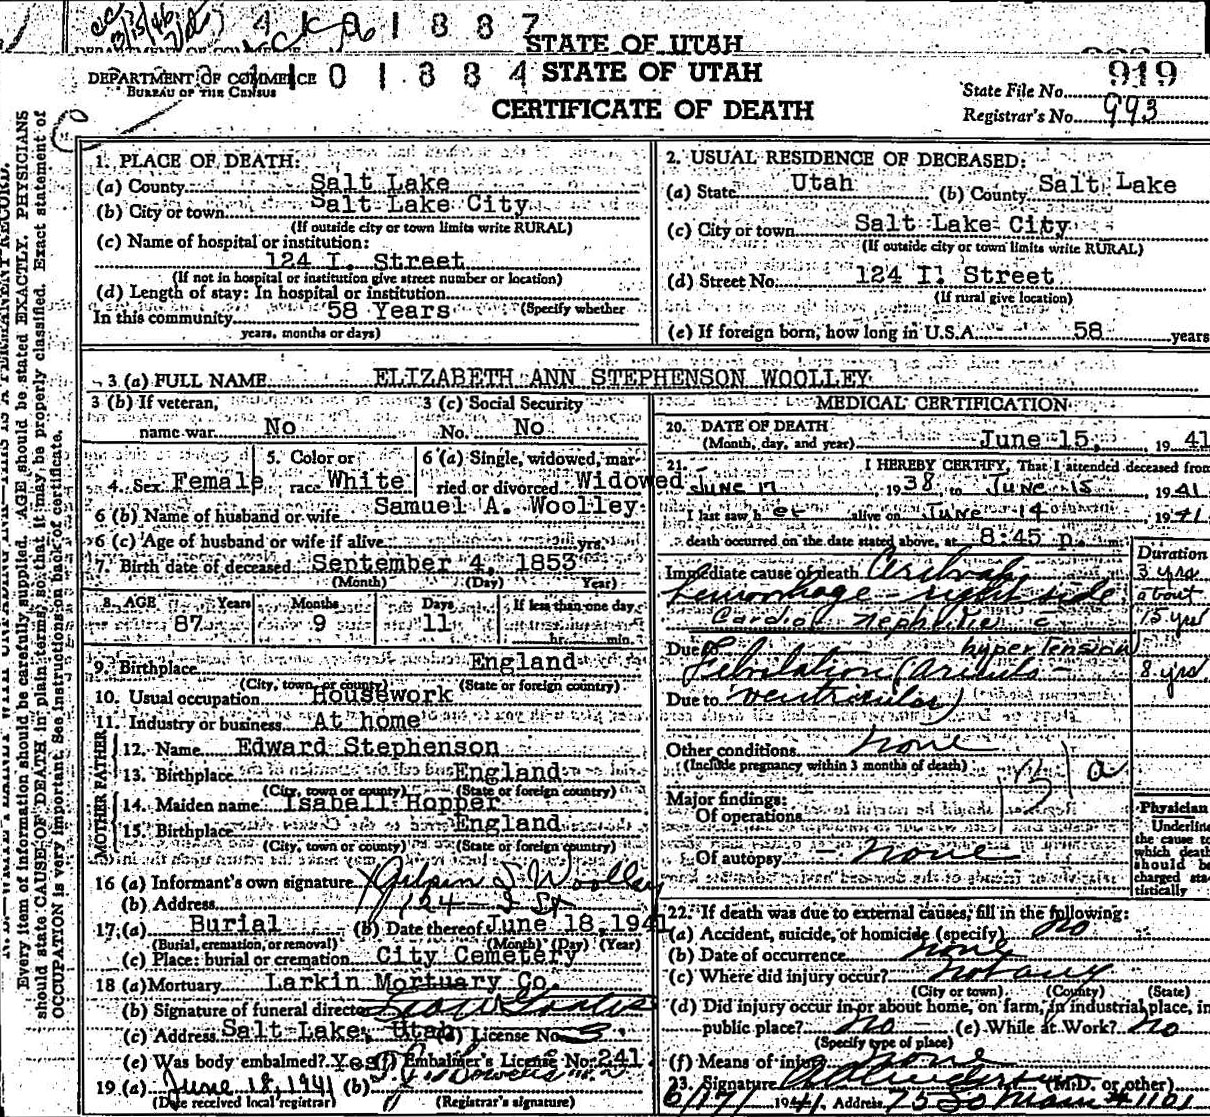 1887
STATE OF UTAH
DEPARTMENT OF COMMERCE
BUREAU OF THE CENSUS
STATE OF UTAH
CERTIFICATE OF DEATH
State File No. 919
Registrar's No. 993
1. PLACE OF DEATH:
(a) County Salt Lake
(b) City or town Salt Lake City
(If outside city or town limits write RURAL)
(c) Name of hospital or institution:
124 I. Street
(If not in hospital or institution give street number or location)
(d) Length of stay: In hospital or institution
(Specify whether
In this community 58 Years
years, months or days)
2. USUAL RESIDENCE OF DECEASED:
(a) State Utah (b) County Salt Lake
(c) City or town Salt Lake City
(If outside city or town limits write RURAL)
(d) Street No. 124 I. Street
(If rural give location)
(e) If foreign born, how long in U.S.A. 58 years
3 (a) FULL NAME ELIZABETH ANN STEPHENSON WOOLLEY
3 (b) If veteran, name war No
3 (c) Social Security No. No
4. Sex Female
5. Color or race White
6 (a) Single, widowed, married or divorced Widowed
6 (b) Name of husband or wife Samuel A. Woolley
6 (c) Age of husband or wife if alive yrs.
7. Birth date of deceased September 4, 1853
(Month) (Day) Year)
8. AGE Years Months Days If less than one day
87 9 11 hr. min.
9. Birthplace England
(City, town, or county) (State or foreign country)
10. Usual occupation Housework
11. Industry or business At home
FATHER
12. Name Edward Stephenson
13. Birthplace England
(City, town or county) (State or foreign country)
MOTHER
14. Maiden name Isabell Hopper
15. Birthplace England
(City, town or county) (State or foreign country)
16 (a) Informant's own signature Gilpin S Woolley
(b) Address 124 - I St
17. (a) Burial (b) Date thereof June 18, 1941
(Burial, cremation, or removal) (Month) (Day) (Year)
(c) Place: burial or cremation City Cemetery
18 (a) Mortuary Larkin Mortuary Co.
(b) Signature of funeral director
(c) Address Salt Lake, Utah (d) License No. 3
(e) Was body embalmed? Yes (f) Embalmer's License No. 241
19 (a) June 18, 1941 (b)
(Date received local registrar) (Registrar's signature)
MEDICAL CERTIFICATION
20. DATE OF DEATH
(Month, day, and year) June 15, 1941
21. I HEREBY CERTIFY, That I attended deceased from
June 17, 1938, to June 15, 1941
I last saw her alive on June 14, 1941
death occurred on the date stated above, at 8:45 p. m.
Duration
Immediate cause of death Cerebral 3 yrs
hemorrhage - right side about
Cardio Nephritis c 15 yrs
Due to hypertension
Febrilation (Auriculo - 8 yrs
Due to ventricular)
Other conditions none
(Include pregnancy within 3 months of death)
131 a
Major findings:
Of operations
Of autopsy none
Physician
Underline
the cause to
which death
should be
charged sta-
tistically
22. If death was due to external causes, fill in the following:
(a) Accident, suicide, or homicide (specify) no
(b) Date of occurrence none
(c) Where did injury occur? not any
(City or town) (County) (State)
(d) Did injury occur in or about home, on farm, in industrial place, in
public place? no (e) While at Work? no
(Specify type of place)
(f) Means of injury none
23. Signature (M.D. or other)
6/17/1941, Address 75 So Main #1101
Every item of information should be carefully supplied. AGE should be stated EXACTLY. PHYSICIANS
should state CAUSE OF DEATH in plain terms, so that it may be properly classified. Exact statement of
OCCUPATION is very important. See instructions on back of certificate.